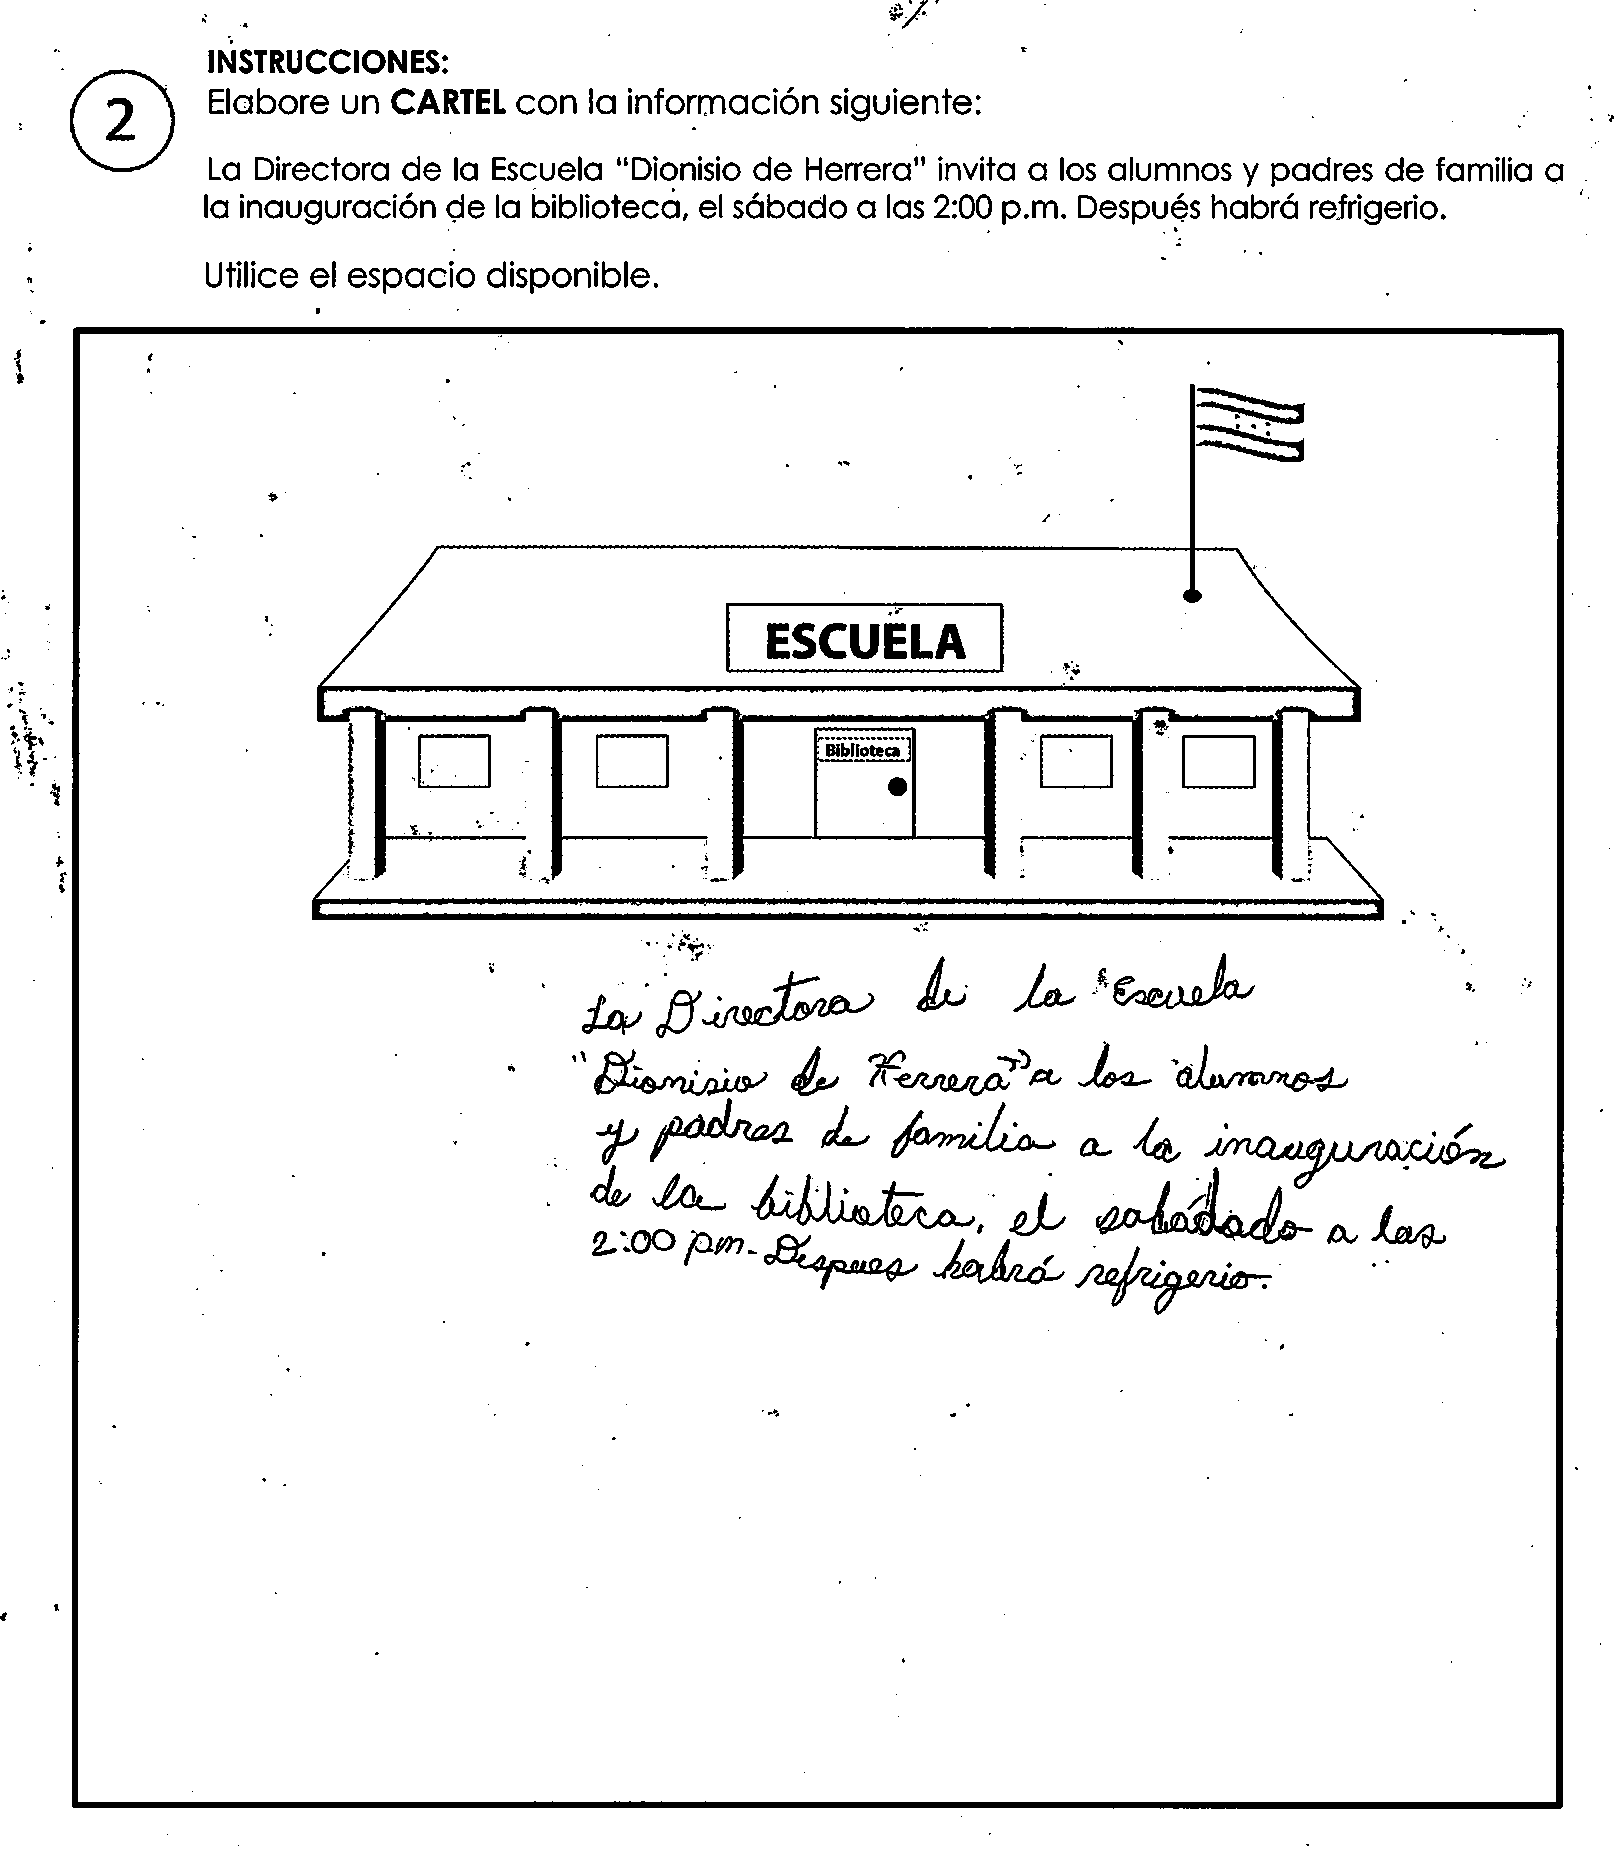 INSTRUCCIONES:
2
Elabore un CARTEL con la información siguiente:
La Directora de la Escuela "Dionisio de Herrera" invita a los alumnos y padres de familia a
la inauguración de la biblioteca, el sábado a las 2:00 p.m. Después habrá refrigerio.
Utilice el espacio disponible.
ESCUELA
Biblioteca
La Directora de la Escuela
"Dionisio de Herrera" a los alumnos
y padres de familia a la inauguración
de la biblioteca, el a las
2:00 pm. Despues habrá refrigerio.